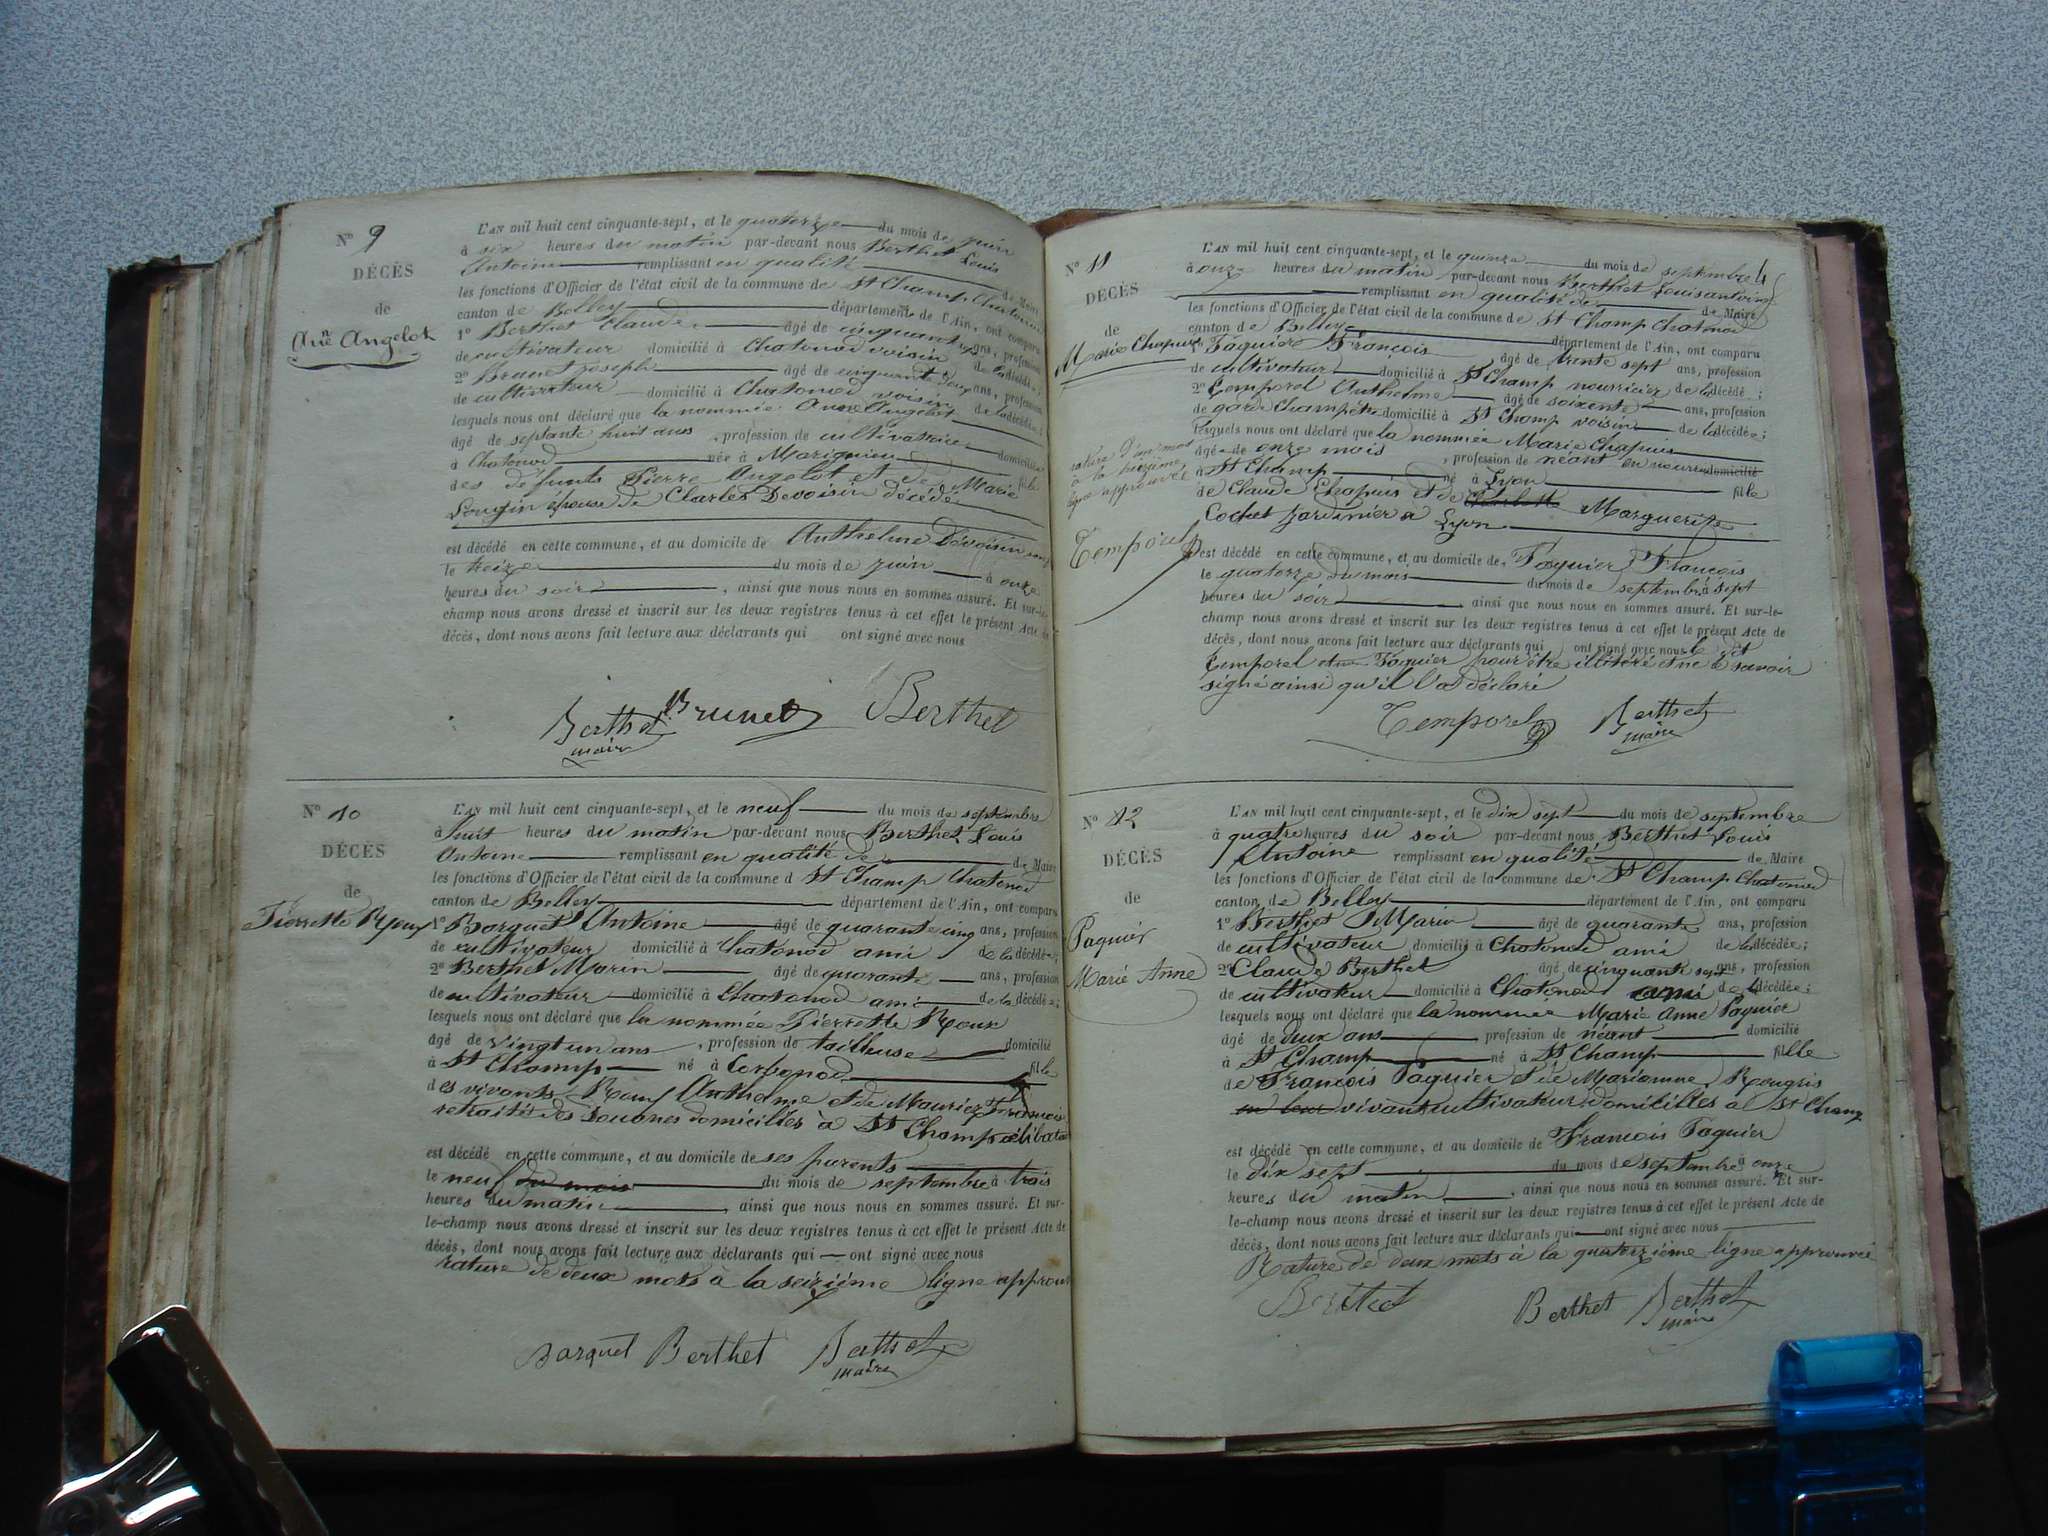 N° 9
DÉCÈS
de
Anne Angelot
L'AN mil huit cent cinquante-sept, et le quatorze du mois de juin
à six heures du matin par-devant nous Berthet Louis
Antoine remplissant en qualité de Maire
les fonctions d'Officier de l'état civil de la commune de St Champ Chatonod
canton de Belley département de l'Ain, ont comparu
1° Berthet Claude âgé de cinquante ans, profession
de cultivateur domicilié à Chatonod voisin de la décédée;
2° Brunet Joseph âgé de cinquante deux ans, profession
de cultivateur domicilié à Chatonod voisin de la décédée;
lesquels nous ont déclaré que la nommée Anne Angelot
âgé de septante huit ans, profession de cultivatrice domicilié
à Chatonod née à Marignieu fille
des défunts Pierre Angelot et de Marie
Lougin épouse de Charles Devoisin décédé
est décédé en cette commune, et au domicile de Anthelme Devoisin
le treize du mois de juin à onze
heures du soir, ainsi que nous nous en sommes assuré. Et sur-le-
champ nous avons dressé et inscrit sur les deux registres tenus à cet effet le présent Acte de
décès, dont nous avons fait lecture aux déclarants qui ont signé avec nous
Berthet Brunet Berthet
maire
N° 10
DÉCÈS
de
Pierrette Roux
L'AN mil huit cent cinquante-sept, et le neuf du mois de septembre
à huit heures du matin par-devant nous Berthet Louis
Antoine remplissant en qualité de de Maire
les fonctions d'Officier de l'état civil de la commune d St Champ Chatonod
canton de Belley département de l'Ain, ont comparu
1° Barquet Antoine âgé de quarante cinq ans, profession
de cultivateur domicilié à Chatonod ami de la décédée;
2° Berthet Marin âgé de quarante ans, profession
de cultivateur domicilié à Chatonod ami de la décédée;
lesquels nous ont déclaré que la nommée Pierrette Roux
âgé de vingt un ans, profession de tailleuse domicilié
à St Champ né à Corbonod fille
des vivants Roux Anthelme et de Mauriez
retraités des Douanes domiciliés à St Champ célibataire
est décédé en cette commune, et au domicile de ses parents
le neuf du mois du mois de septembre à trois
heures du matin, ainsi que nous nous en sommes assuré. Et sur-
le-champ nous avons dressé et inscrit sur les deux registres tenus à cet effet le présent Acte de
décès, dont nous avons fait lecture aux déclarants qui ont signé avec nous
rature de deux mots à la seizième ligne approuvé
Barquet Berthet Berthet
maire
N° 11
DÉCÈS
de
Marie Chapuis
L'AN mil huit cent cinquante-sept, et le quinze du mois de septembre
à onze heures du matin par-devant nous Berthet Louis antoine
remplissant en qualité de de Maire
les fonctions d'Officier de l'état civil de la commune de St Champ Chatonod
canton de Belley département de l'Ain, ont comparu
1° Paquier François âgé de trente sept ans, profession
de cultivateur domicilié à St Champ nourricier de la décédée;
2° Temporel Anthelme âgé de soixente ans, profession
de garde Champêtre domicilié à St Champ voisin de la décédée;
lesquels nous ont déclaré que la nommée Marie Chapuis
âgé de onze mois, profession de néant en nourrice domicilié
à St Champ né à Lyon fille
de Claude Chapuis et de Marguerite
Cochet jardinier a Lyon
rature d'un mot
à la treizième
ligne approuvée
Temporel
est décédé en cette commune, et au domicile de Paquier François
le quatorze du mois du mois de septembre à sept
heures du soir, ainsi que nous nous en sommes assuré. Et sur-le-
champ nous avons dressé et inscrit sur les deux registres tenus à cet effet le présent Acte de
décès, dont nous avons fait lecture aux déclarants qui ont signé avec nous le dit
Temporel Paquier pour être illitéré et ne savoir
signé ainsi qu'il l'a déclaré
Temporel Berthet
maire
N° 12
DÉCÈS
de
Paquier
Marie Anne
L'AN mil huit cent cinquante-sept, et le dix sept du mois de septembre
à quatre heures du soir par-devant nous Berthet Louis
Antoine remplissant en qualité de Maire
les fonctions d'Officier de l'état civil de la commune de St Champ Chatonod
canton de Belley département de l'Ain, ont comparu
1° Berthet Marin âgé de quarante ans, profession
de cultivateur domicilié à Chatonod ami de la décédée;
2° Claude Berthet âgé de cinquante sept ans, profession
de cultivateur domicilié à Chatonod ami de la décédée;
lesquels nous ont déclaré que la nommée Marie Anne Paquier
âgé de deux ans, profession de néant domicilié
à St Champ né à St Champ fille
de François Paquier et de Marianne Rougris
en leur vivant cultivateur domicilles à St Champ
est décédé en cette commune, et au domicile de François Paquier
le dix sept du mois de septembre à onze
heures du matin, ainsi que nous nous en sommes assuré. Et sur-
le-champ nous avons dressé et inscrit sur les deux registres tenus à cet effet le présent Acte de
décès, dont nous avons fait lecture aux déclarants qui ont signé avec nous
Rature de deux mots à la quatorzième ligne approuvée
Berthet Berthet Berthet
maire